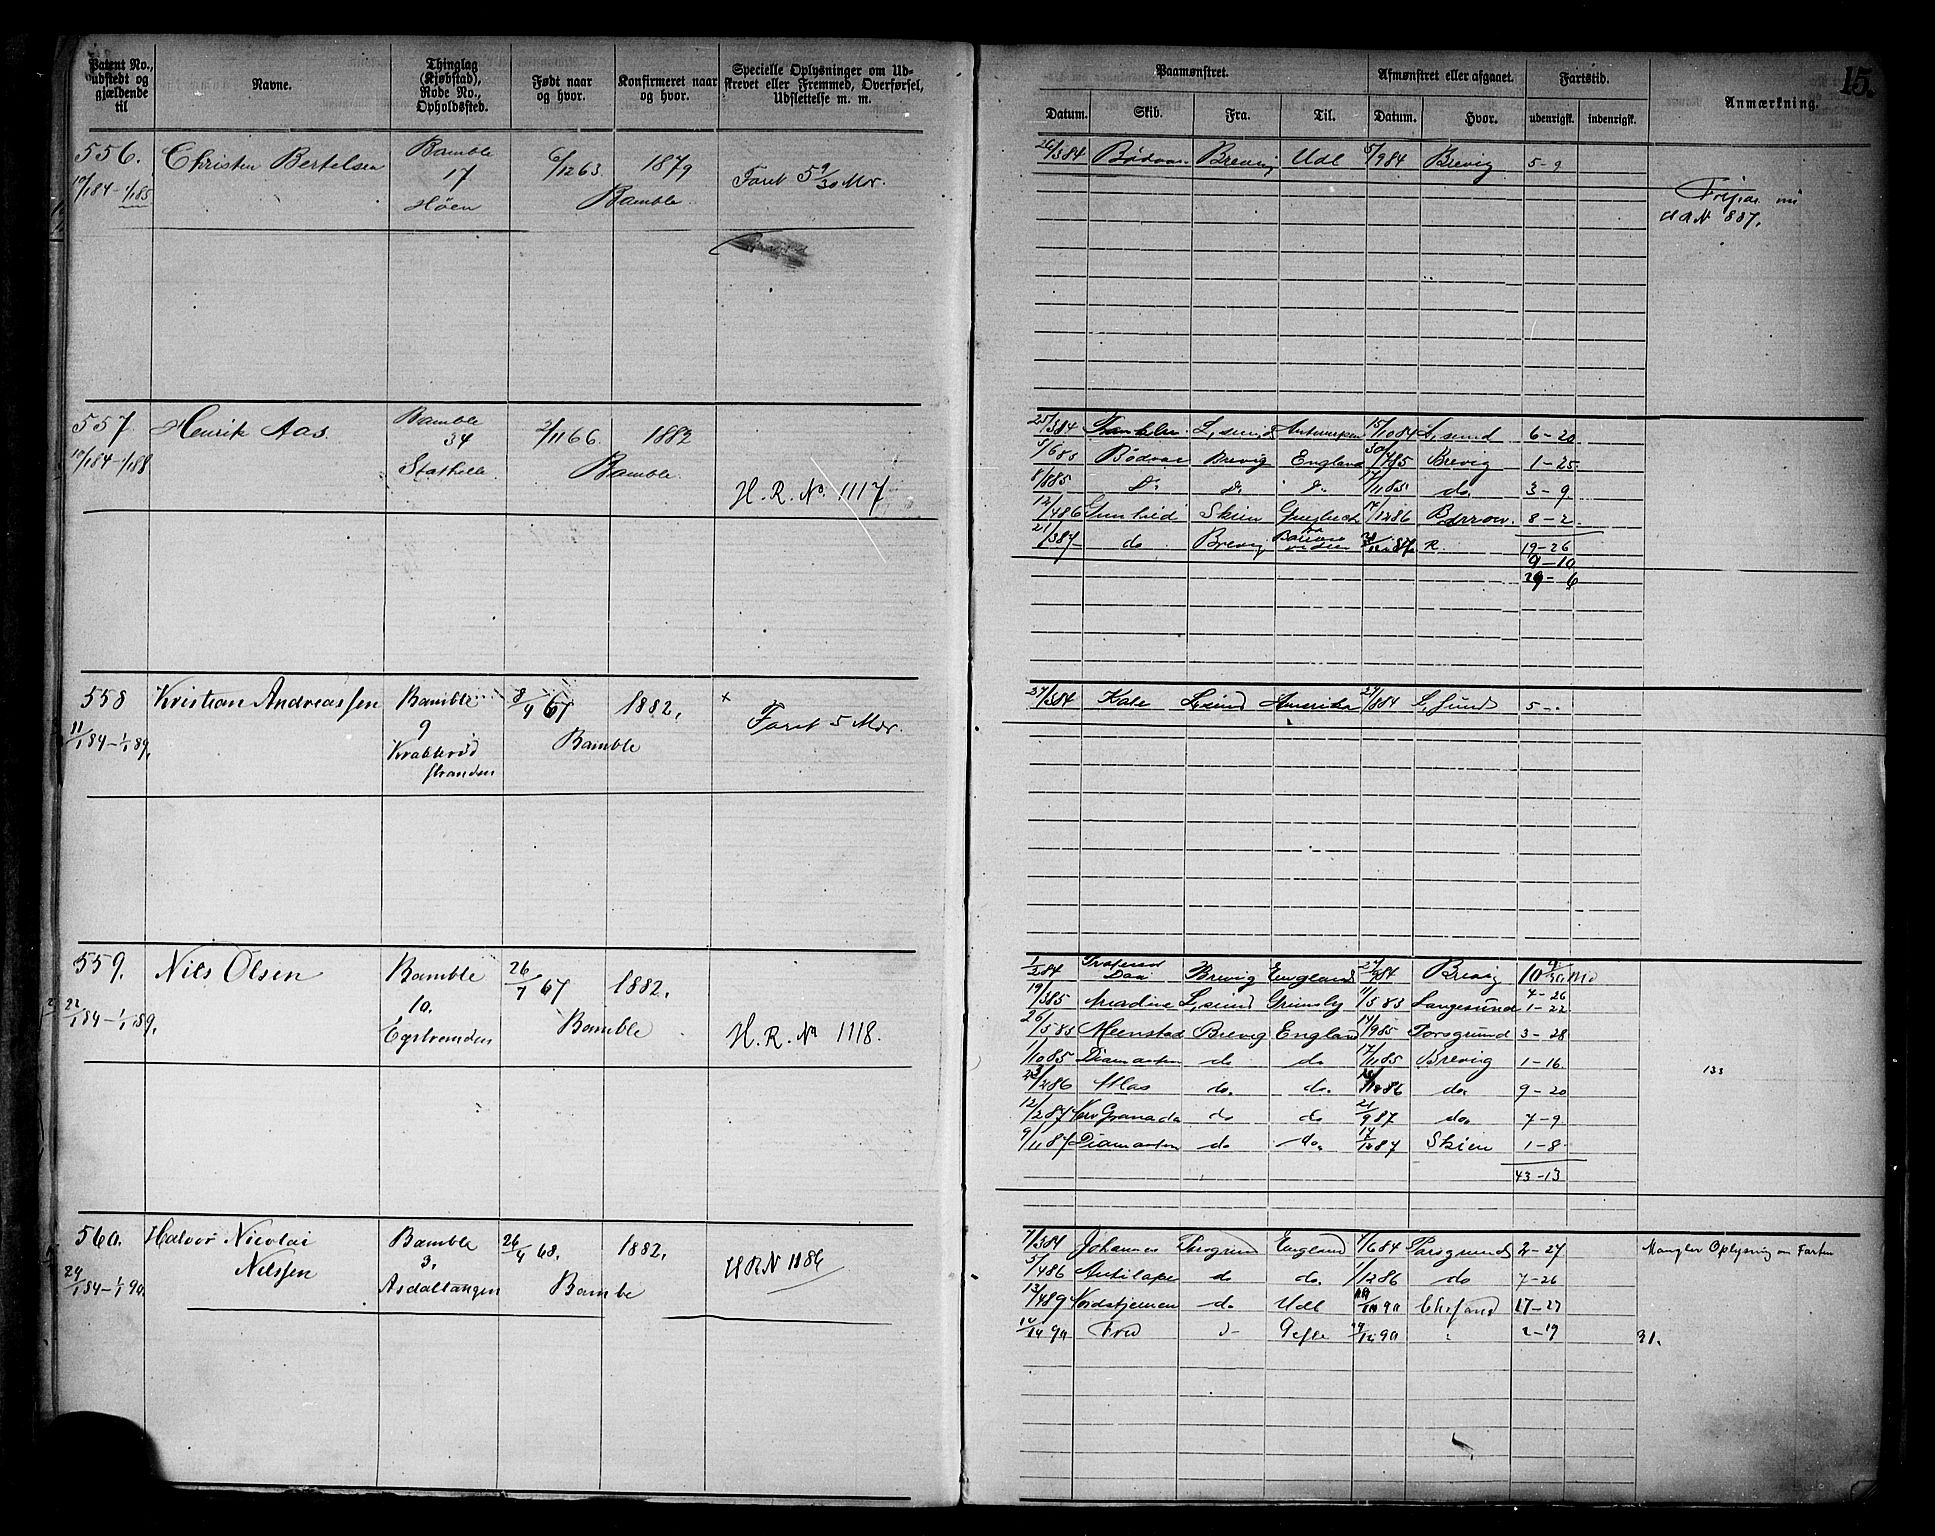 Patent No., udstedt og gjældende til
Navne.
Thinglag (Kjøbstad), Rode No., Opholdssted.
Født naar og hvor.
Konfirmeret naar og hvor.
Specielle Oplysninger om Udskrevet eller Fremmed, Overførsel, Udslettelse m. m.
Paamønstret.
Afmønstret eller afgaaet.
Fartstid.
Anmærkning.
15.
Datum. Skib. Fra. Til. Datum. Hvor. udenrigsk. indenrigsk.
556. Christen Bertelsen Bamble 6/12 63. 1879
10/1 84 - 1/1 85 17 Bamble Faret 5 9/30 Mdr.
Høen
26/3 84 Bødvar Brevig Udl 5/9 84 Brevig 5-9
887.
557. Henrik Aas. Bamble 2/11 66. 1882
10/1 84 - 1/1 88 34 Bamble.
Stathelle
H. R. No. 1117
25/3 84 L.sund Antwerpen 15/10 84 L.sund 6-20
5/6 85 Bødvar Brevig England 30/7 85 Brevig 1-25
8/8 85 Do Do Do 17/11 85 do 3-9
12/4 86 Skien 14/12 86 Barrow. 8-2
21/3 87 do Brevig 19-26
9-10
29-6
558 Kristian Andreassen Bamble 8/9 67 1882. ×
11/1 84 - 1/1 89. 9 Bamble Faret 5 Mdr.
Krabberød
stranden
27/3 84 Kate L.sund Amerika 27/8 84 L.sund 5-.
559. Nils Olsen Bamble 26/7 67 1882.
22/1 84 - 1/1 89. 10. Bamble
H. R. No 1118.
1/2 84 Brevig England 27/9 84 Brevig
19/3 85 Ariadne L.sund Grimsby 11/5 85 Langesund 1-22
26/5 85 Menstad Brevig England 14/9 85 Porsgrund 3-28
1/10 85 Diamanten do do 17/11 85 Brevig 1-16.
23/2 86 Atlas do. do. 86 do. 9-20
12/2 87 Granada do do 21/9 87 do. 7-9
9/11 87 Diamanten do do. 17/12 87 Skien 1-8
43-13
133
560. Halvor Nicolai Nilssen Bamble 26/9 68. 1882.
24/1 84 - 1/1 90. 3. Bambe HRN 1886
Asdaltangen
7/3 84 Johannes Porsgrund England 7/6 84 Porsgrund 2-27 Mangler Oplysning om Farten
5/4 86 Antilope do do. 1/12 86 do 7-26
13/4 89 Nordstjernen do Udl 90 17-27
90 Gefle 90 2-19 31.